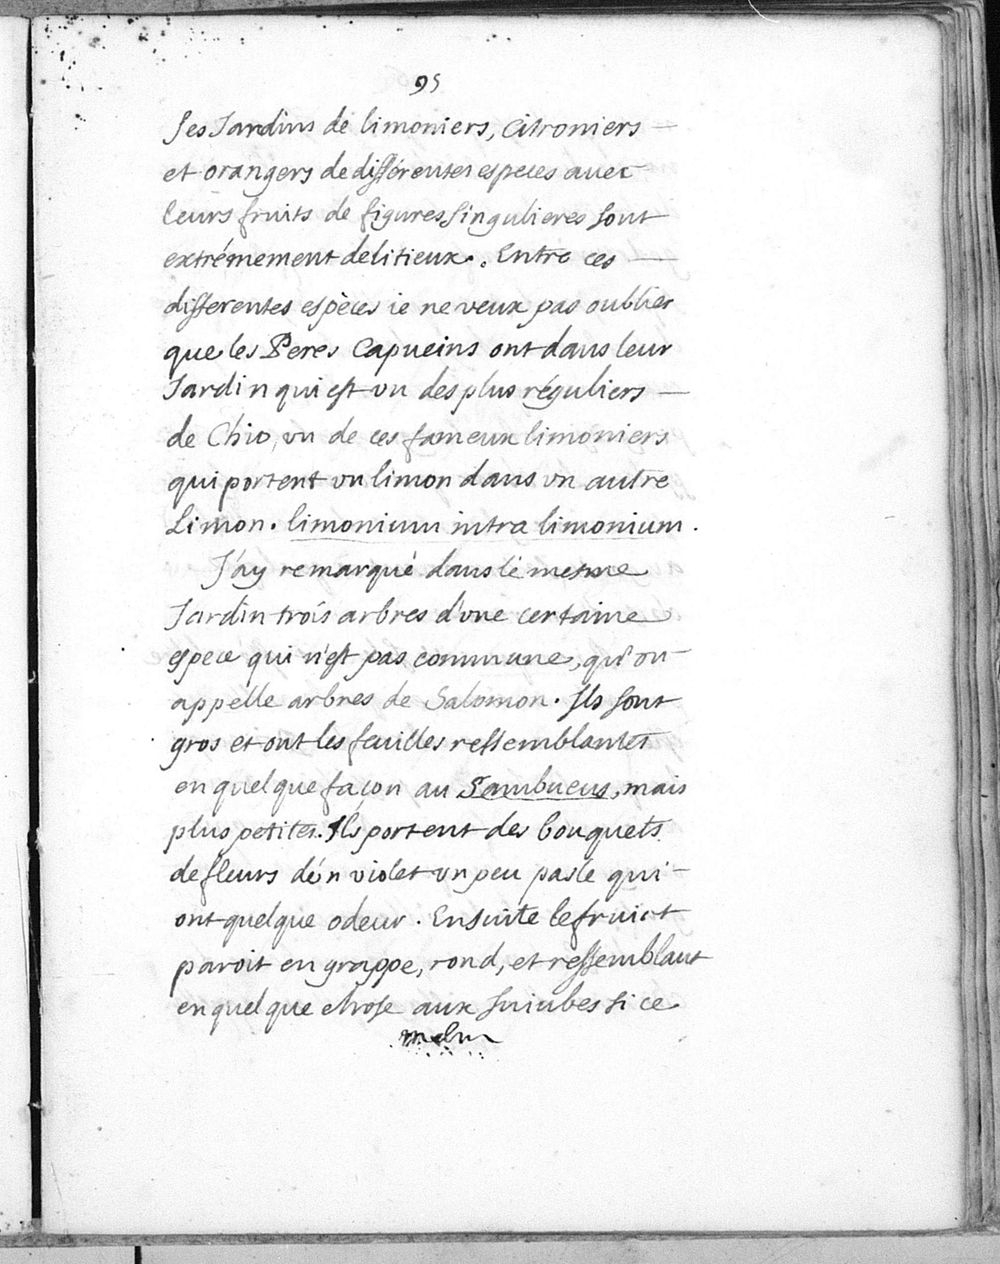 95
ses Jardins de limoniers, Citroniers
et orangers de différentes especes avec
leurs fruits de figures singulieres sont
extrémement delitieux. Entre ces
differentes espèces ie ne veux pas oublier
que les Peres Capucins ont dans leur
Jardin qui est vn des plus réguliers
de Chio, vn de ces fameux limoniers
qui portent vn limon dans vn autre
Limon. limonium intra limonium.
J'ay remarqué dans le mesme
Jardin trois arbres d'vne certaine
espece qui n'est pas commune, qu'on
appelle arbres de Salomon. Ils sont
gros et ont les feuilles ressemblantes
en quelque façon au Sambucus, mais
plus petites. Ils portent des bouquets
de fleurs d'vn violet vn peu pasle qui
ont quelque odeur. Ensuite le fruict
paroit en grappe, rond, et ressemblant
en quelque chose aux Juiubes si ce